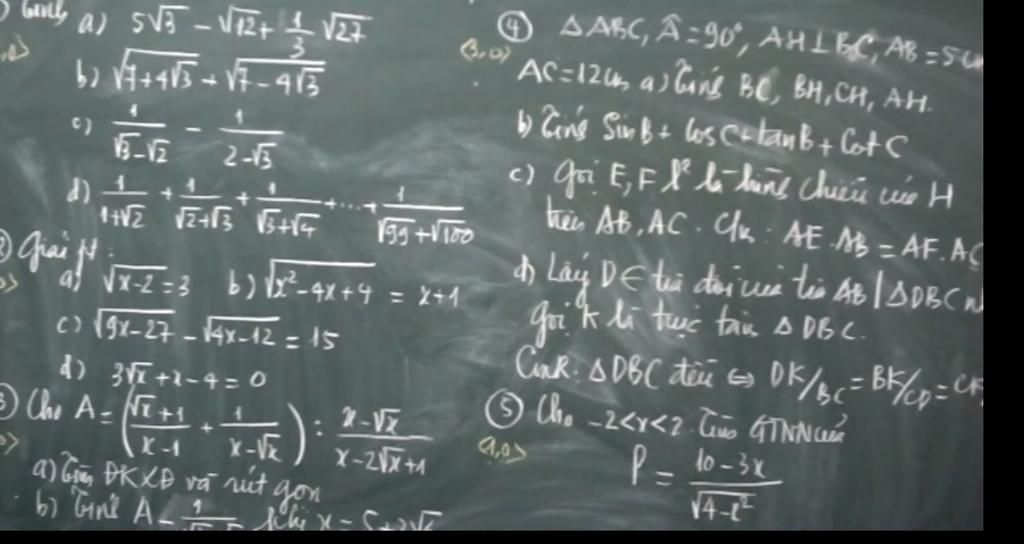 Tính a) 5√3 - √12 + 1/3 √27
b) √(7+4√3) + √(7-4√3)
c) 1/(√3-√2) - 1/(2-√3)
d) 1/(1+√2) + 1/(√2+√3) + 1/(√3+√4) + ... + 1/(√99+√100)
Giải pt:
a) √(x-2) = 3 b) √(x²-4x+4) = x+1
c) √(9x-27) - √(4x-12) = 15
d) 3√x + x - 4 = 0
Cho A = ((√x+1)/(x-1) + 1/(x-√x)) : (x-√x)/(x-2√x+1)
a) Tìm ĐKXĐ và rút gọn
b) Tính A - khi x =
④ ΔABC, Â = 90°, AH⊥BC, AB = 5c
(3,0)
AC = 12cm a) Tính BC, BH, CH, AH.
b) Tính SinB + CosC + tanB + Cot C
c) gọi E, F l² là hình chiếu của H
trên AB, AC. Cm: AE.AB = AF.AC
d) Lấy D ∈ tia đối của tia AB | ΔDBC n
gọi K là trực tâm Δ DBC.
CmR: ΔDBC đều ⇔ DK/BC = BK/CD = CK
⑤ Cho -2<x<2. Tìm GTNN của
(1,0)
P = (10-3x)/√(4-x²)